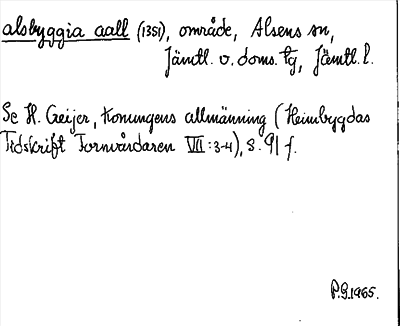 alsbyggia aall (1351), område, Alsens sn,
Jämtl. v. doms. tg, Jämtl. l.
Se H. Geijer, Konungens allmänning (Heimbygdas
Tidskrift Fornvårdaren VII:3-4), s. 91 f.
P.G.1965.